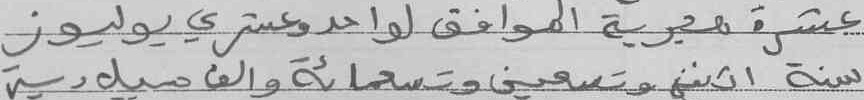 عشرة هجرية الموافق لواحد وعشري يوليوز
سنة اثنين وتسعين وتسعمائة والف ميلادية